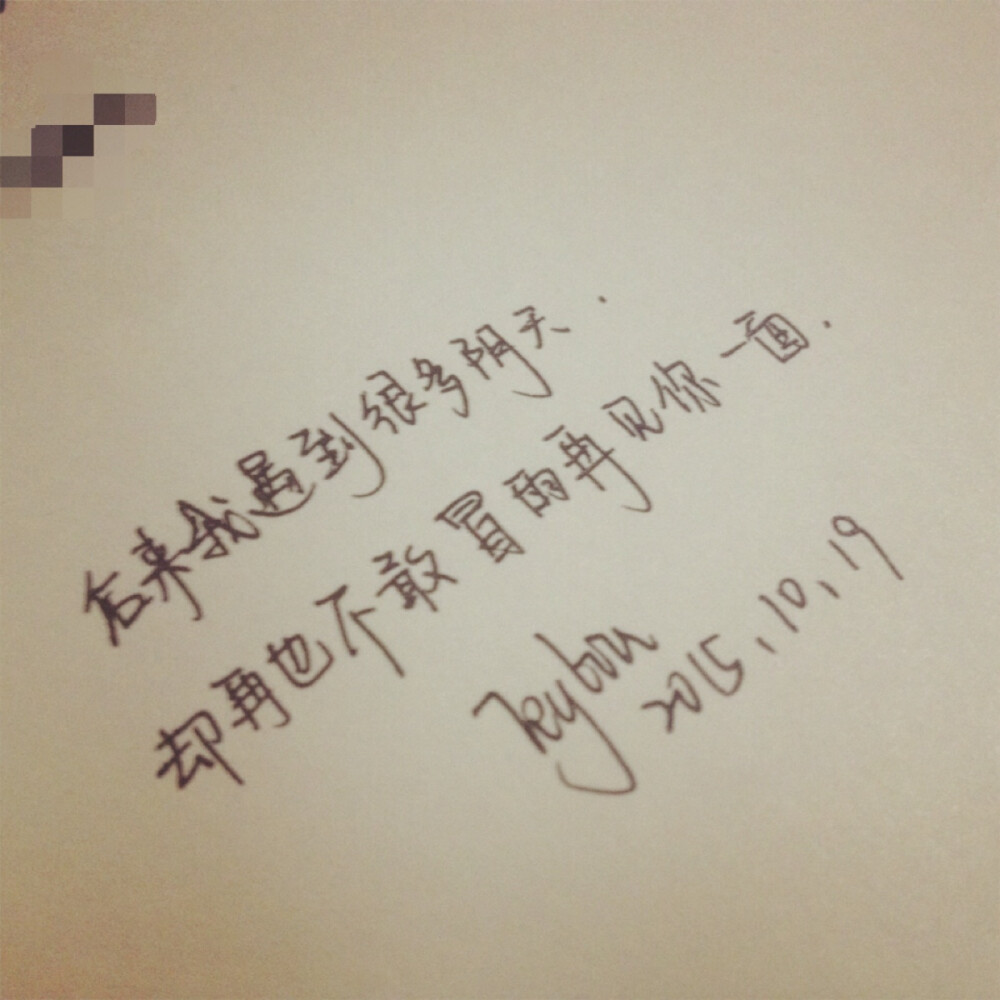 后来我遇到很多阴天.
却再也不敢冒雨再见你一面.
2015.10.19